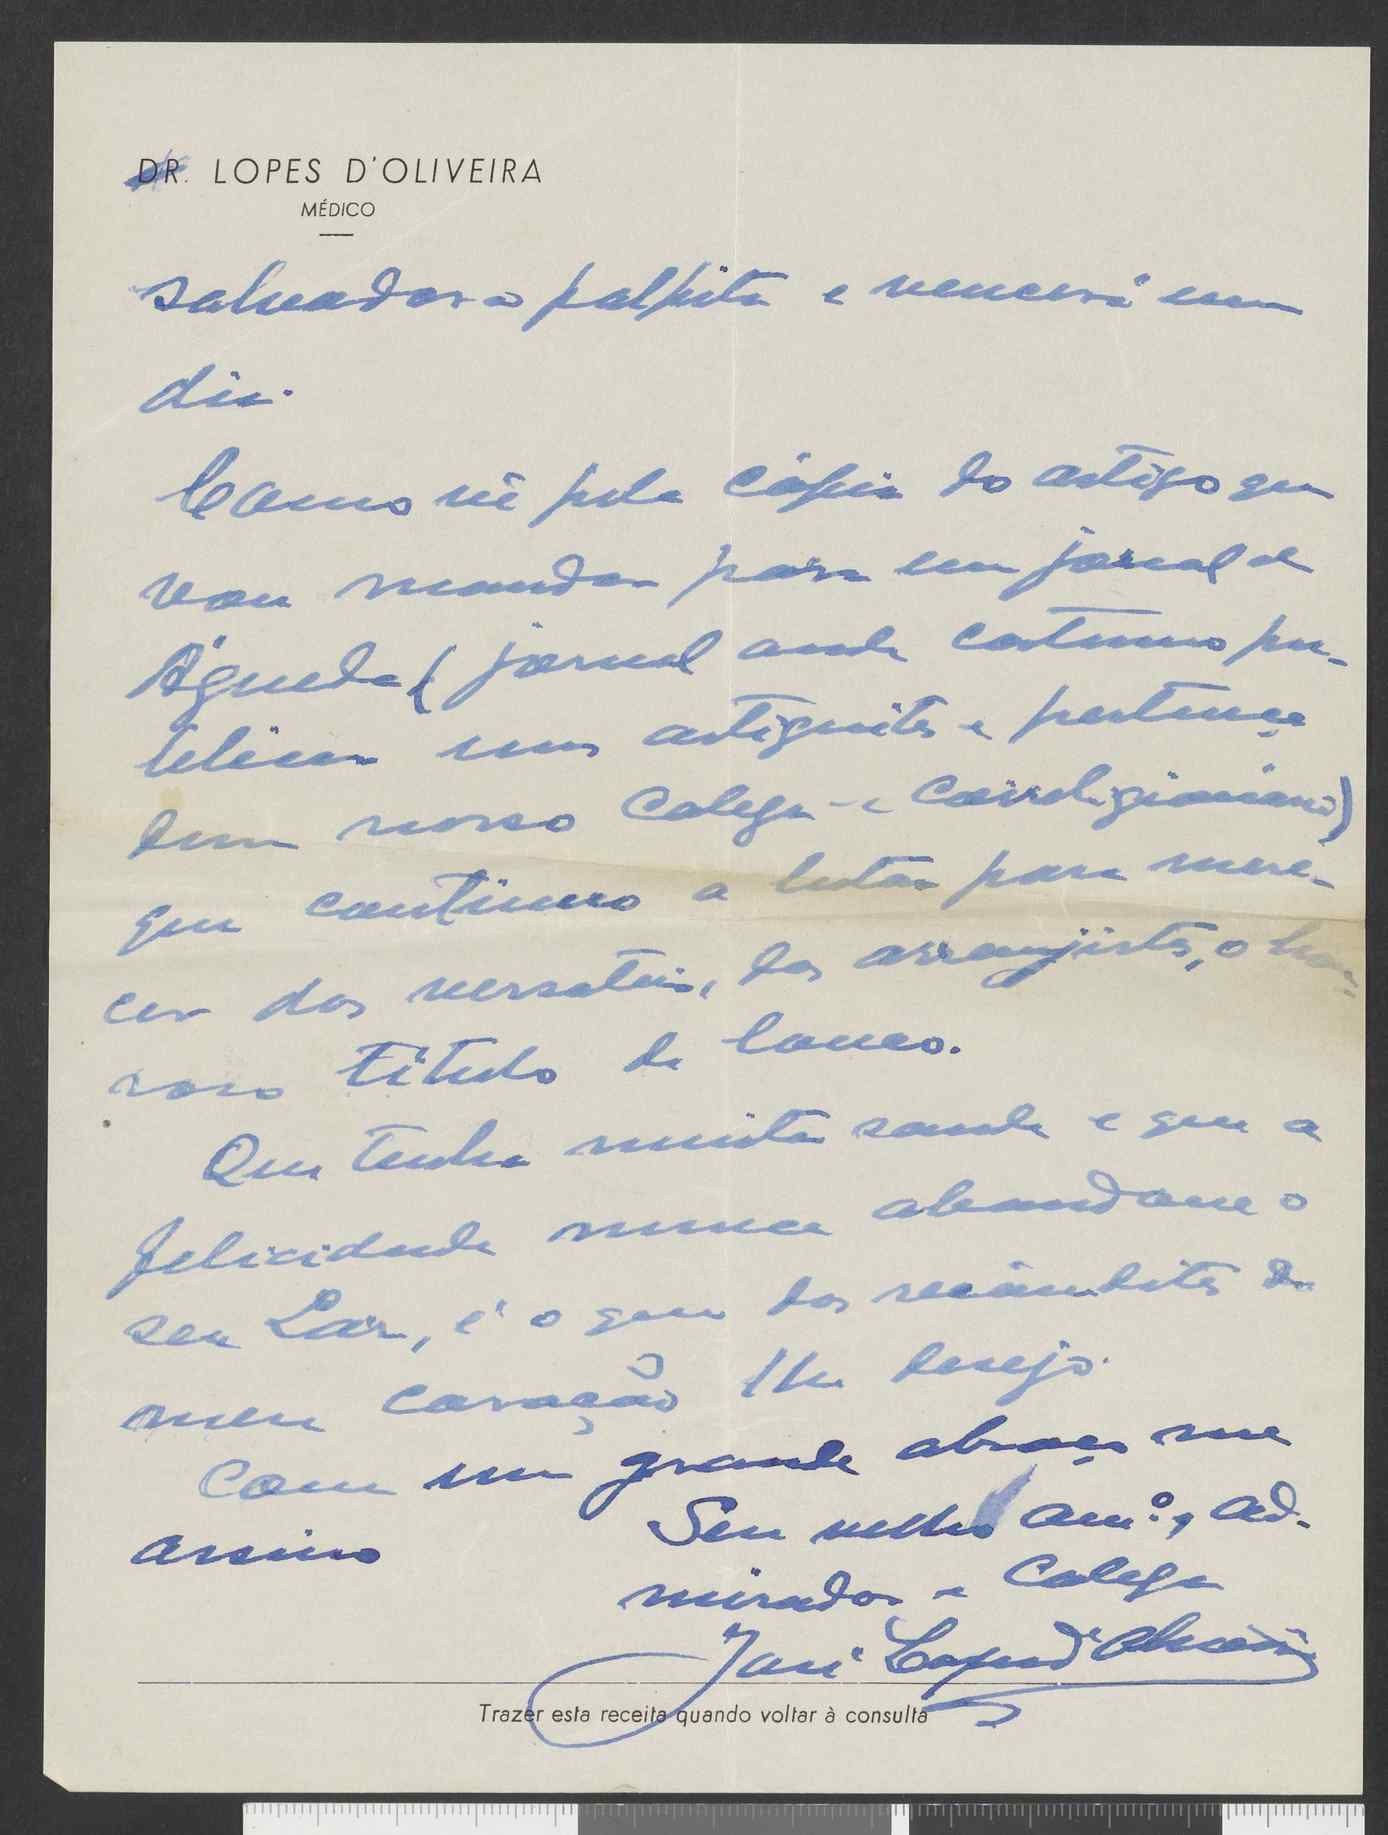 DR. LOPES D'OLIVEIRA
MÉDICO
salvadora palpita e vencerá um
dia.
Como vê pela cópia do artigo que
vou mandar para um jornal de
Águeda (jornal onde costumo pu-
blicar uns artiguitos e pertence
dum nosso colega e correligionário)
que continuo a lutar para mere-
cer dos versáteis, dos arranjistas, o hon-
roso título de louco.
Que tenha muita saude e que a
felicidade nunca abandone o
seu Lar, é o que dos recônditos do
meu coração lhe desejo.
Com um grande abraço me
assino
Seu velho am.º, ad-
mirador e Colega
José Lopes d'Oliveira
Trazer esta receita quando voltar à consulta